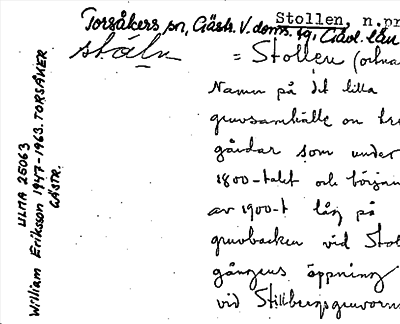 Stollen, n.pr
Torsåkers sn, Gästr. V. doms. sg, Gävl. län
ståln = Stollen (ortna
Namn på det lilla
gruvsamhälle on tre
gårdar som under
1800-talet och början
av 1900-t låg på
gruvbacken vid Stol
gångens öppning
vid Stillbergsgruvorna
ULMA 25063
William Eriksson 1947-1963. TORSÅKER
GÄSTR.